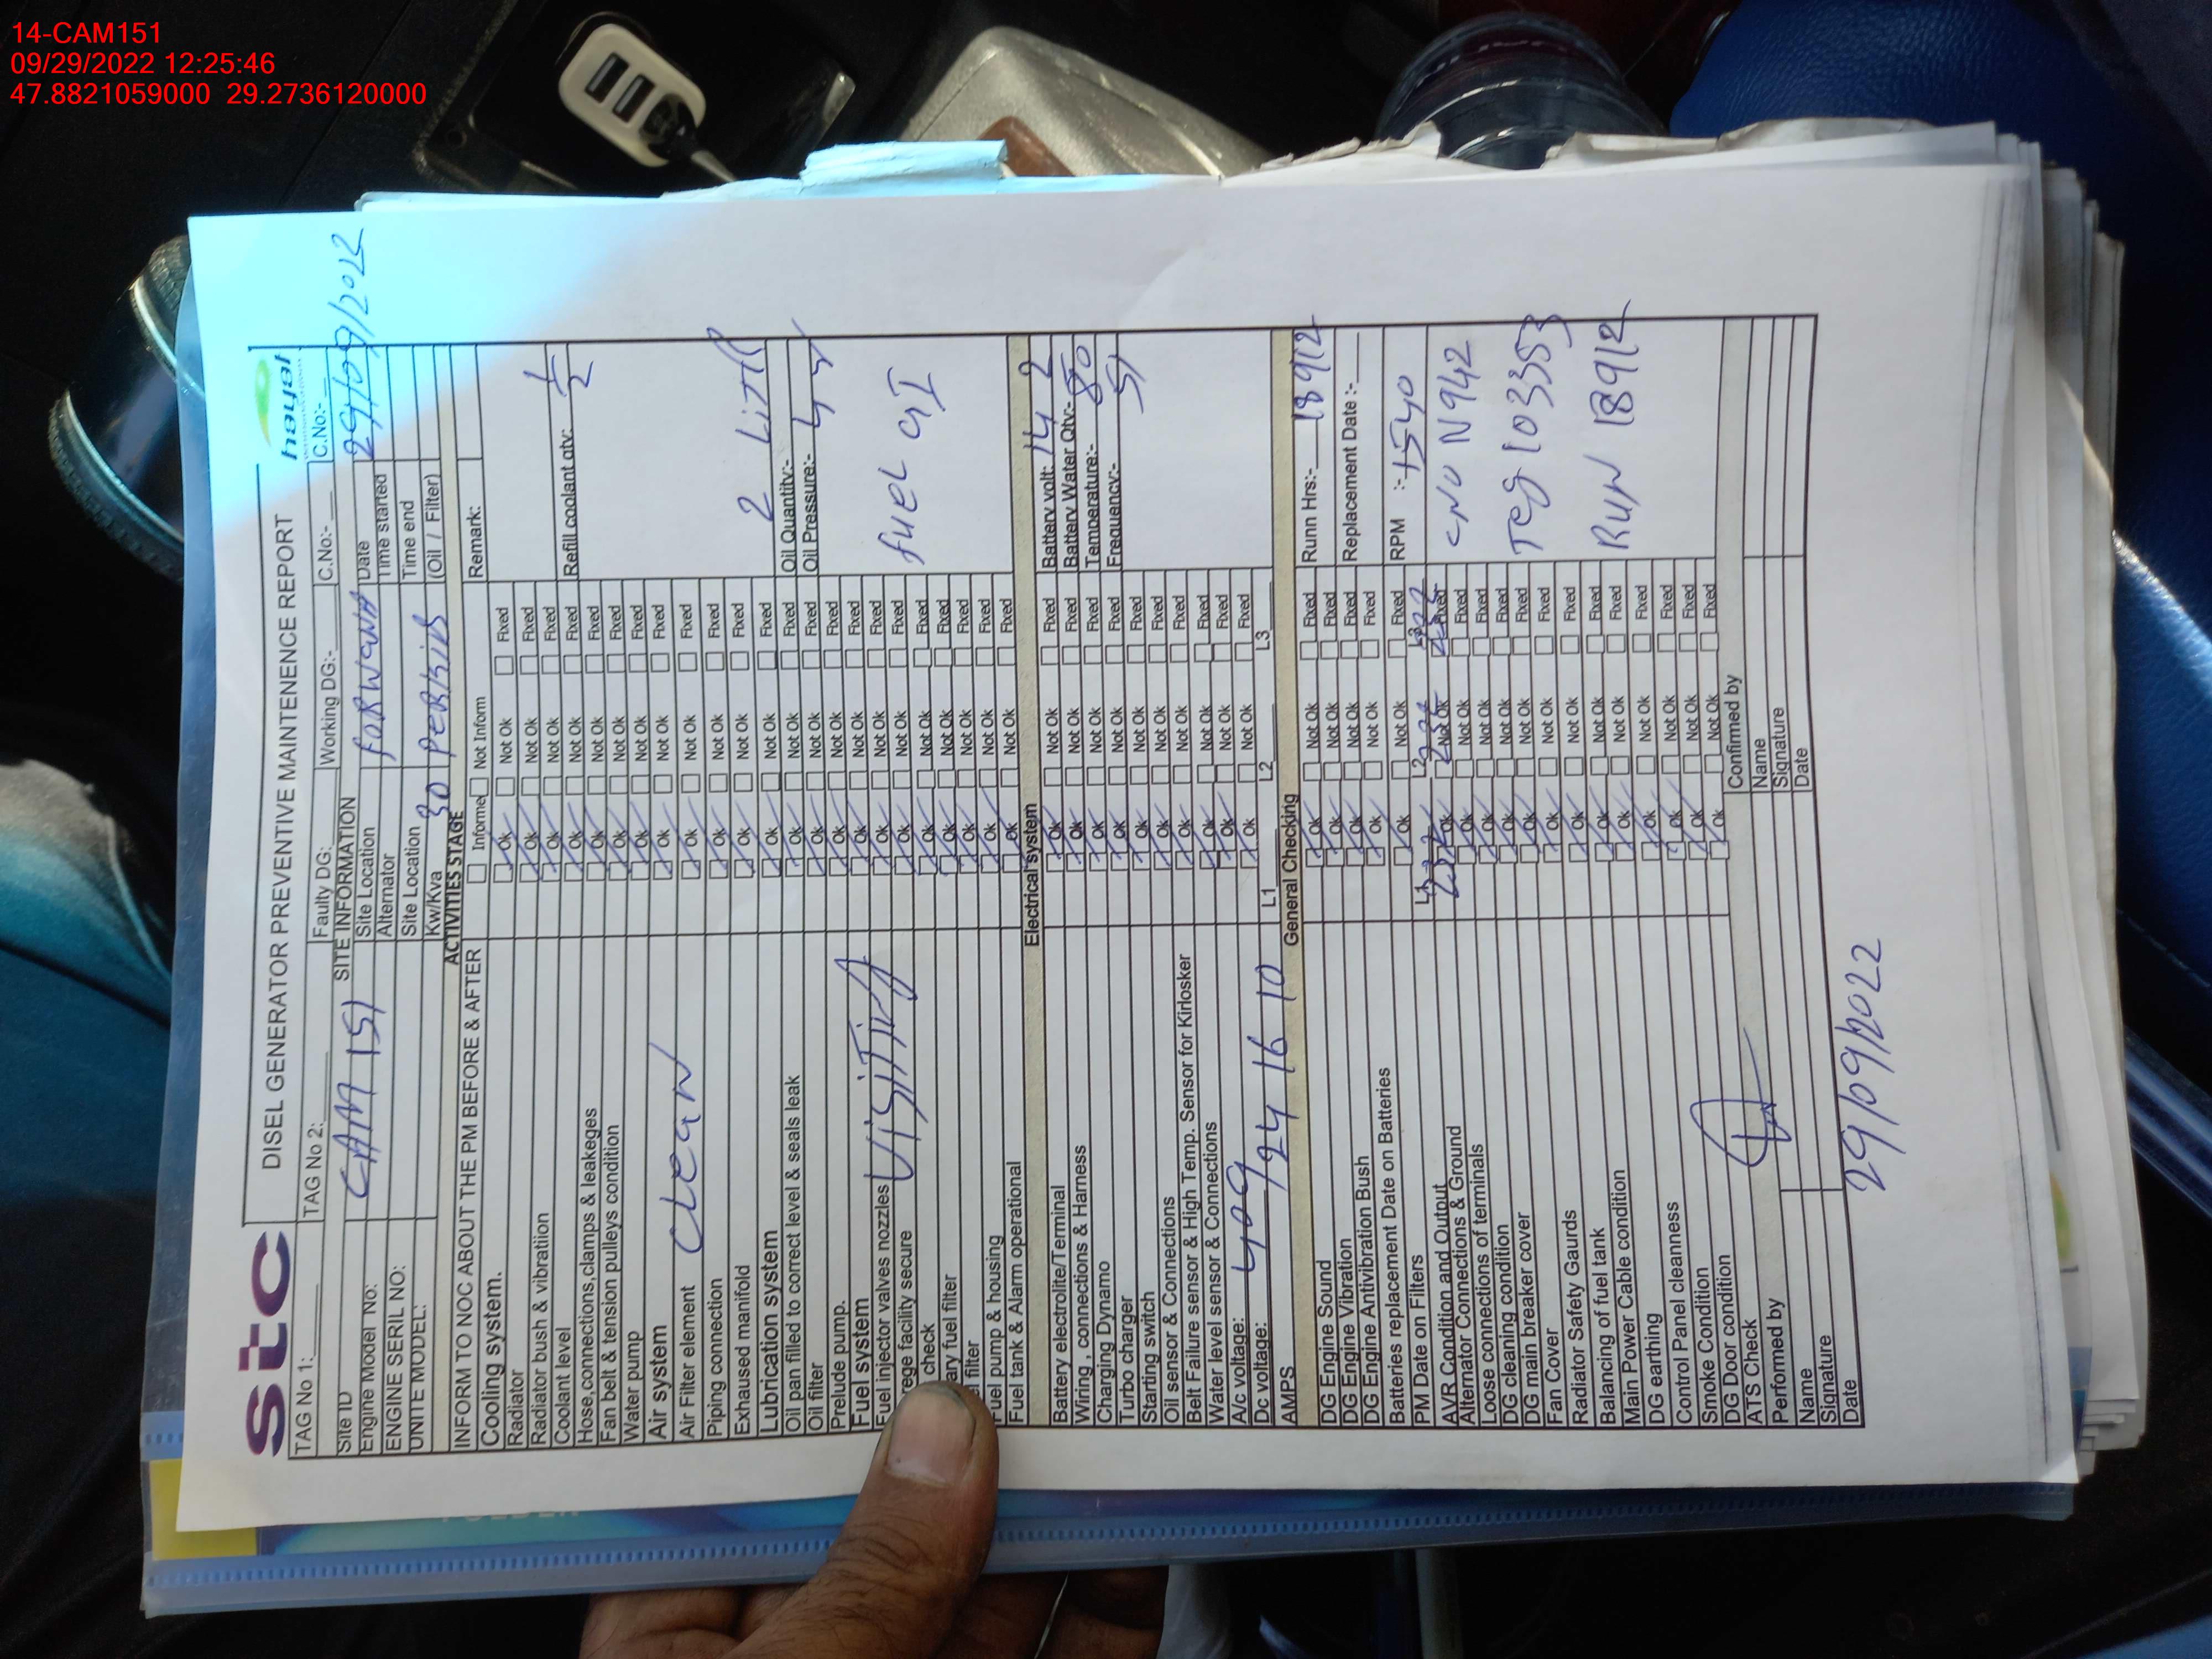 14-CAM151
09/29/2022 12:25:46
47.8821059000 29.2736120000
stc
DISEL GENERATOR PREVENTIVE MAINTENENCE REPORT
hayat
TAG No 1:
TAG No 2:
Faulty DG:
Working DG:-
C.No:-
C.No:-
SITE INFORMATION
Site ID CAM 151 Site Location FARWANA Date 29/09/2022
Engine Model No: Alternator Time started
ENGINE SERIL NO: Site Location Time end
UNITE MODEL: Kw/Kva 30 PERKINS (Oil / Filter)
ACTIVITIES STAGE
INFORM TO NOC ABOUT THE PM BEFORE & AFTER Informe Not Inform Remark:
Cooling system. Ok Not Ok Fixed
Radiator Ok Not Ok Fixed
Radiator bush & vibratiion Ok Not Ok Fixed
Coolant level Ok Not Ok Fixed Refill coolant qty: 1/2
Hose,connections,clamps & leakeges Ok Not Ok Fixed
Fan belt & tension pulleys condition Ok Not Ok Fixed
Water pump Ok Not Ok Fixed
Air system Ok Not Ok Fixed
Air Filter element CLEAN Ok Not Ok Fixed
Piping connection Ok Not Ok Fixed
Exhaused manifold Ok Not Ok Fixed
Lubrication system Ok Not Ok Fixed 2 LITR
Oil pan filled to correct level & seals leak Ok Not Ok Fixed Oil Quantity:-
Oil filter Ok Not Ok Fixed Oil Pressure:-
Prelude pump. Ok Not Ok Fixed
Fuel system Ok Not Ok Fixed
Fuel injector valves nozzles VISITING Ok Not Ok Fixed
rege facility secure Ok Not Ok Fixed FUEL
check Ok Not Ok Fixed
ary fuel filter Ok Not Ok Fixed
filter Ok Not Ok Fixed
Fuel pump & housing Ok Not Ok Fixed
Fuel tank & Alarm operational
Electrical system
Battery electrolite/Terminal Ok Not Ok Fixed Battery volt: 14 2
Wiring , connections & Harness Ok Not Ok Fixed Battery Water Qty:-
Charging Dynamo Ok Not Ok Fixed Temperature:- 80
Turbo charger Ok Not Ok Fixed Frequency:- 51
Starting switch Ok Not Ok Fixed
Oil sensor & Connections Ok Not Ok Fixed
Belt Failure sensor & High Temp. Sensor for Kirlosker Ok Not Ok Fixed
Water level sensor & Connections Ok Not Ok Fixed
A/c voltage: 409 Ok Not Ok Fixed
Dc voltage: L1 L2 L3
AMPS 24 16 10
General Checking
DG Engine Sound Ok Not Ok Fixed Runn Hrs:- 18912
DG Engine Vibration Ok Not Ok Fixed
DG Engine Antivibration Bush Ok Not Ok Fixed Replacement Date :-
Batteries replacement Date on Batteries Ok Not Ok Fixed
PM Date on Filters Ok Not Ok Fixed RPM :- 1540
AVR Condition and Output L1 L2 L3
Alternator Connections & Ground Ok Not Ok Fixed CNO N942
Loose connections of terminals Ok Not Ok Fixed
DG cleaning condition Ok Not Ok Fixed
DG main breaker cover Ok Not Ok Fixed Teg 103353
Fan Cover Ok Not Ok Fixed
Radiator Safety Gaurds Ok Not Ok Fixed
Balancing of fuel tank Ok Not Ok Fixed
Main Power Cable condition Ok Not Ok Fixed RUN 18912
DG earthing Ok Not Ok Fixed
Control Panel cleanness Ok Not Ok Fixed
Smoke Condition Ok Not Ok Fixed
DG Door condition Ok Not Ok Fixed
ATS Check
Performed by Confirmed by
Name Name
Signature Signature
Date Date
29/09/2022